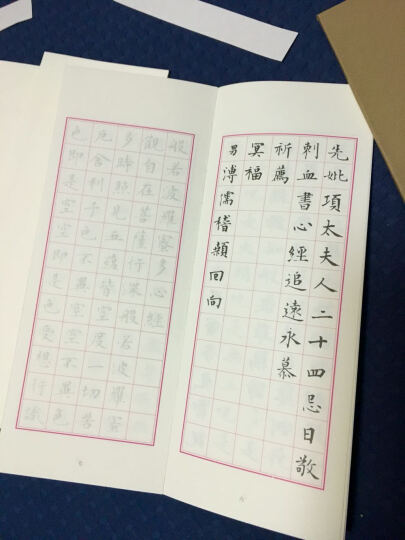 先妣項太夫人二十四忌日敬
刺血書心經追遠永慕
祈薦
冥福
男溥儒稽顙回向
般若波羅蜜多心經
觀自在菩薩行深般若波羅蜜
多時照見五蘊皆空度一切苦
厄舍利子色不異空空不異色
色即是空空即是色受想行識